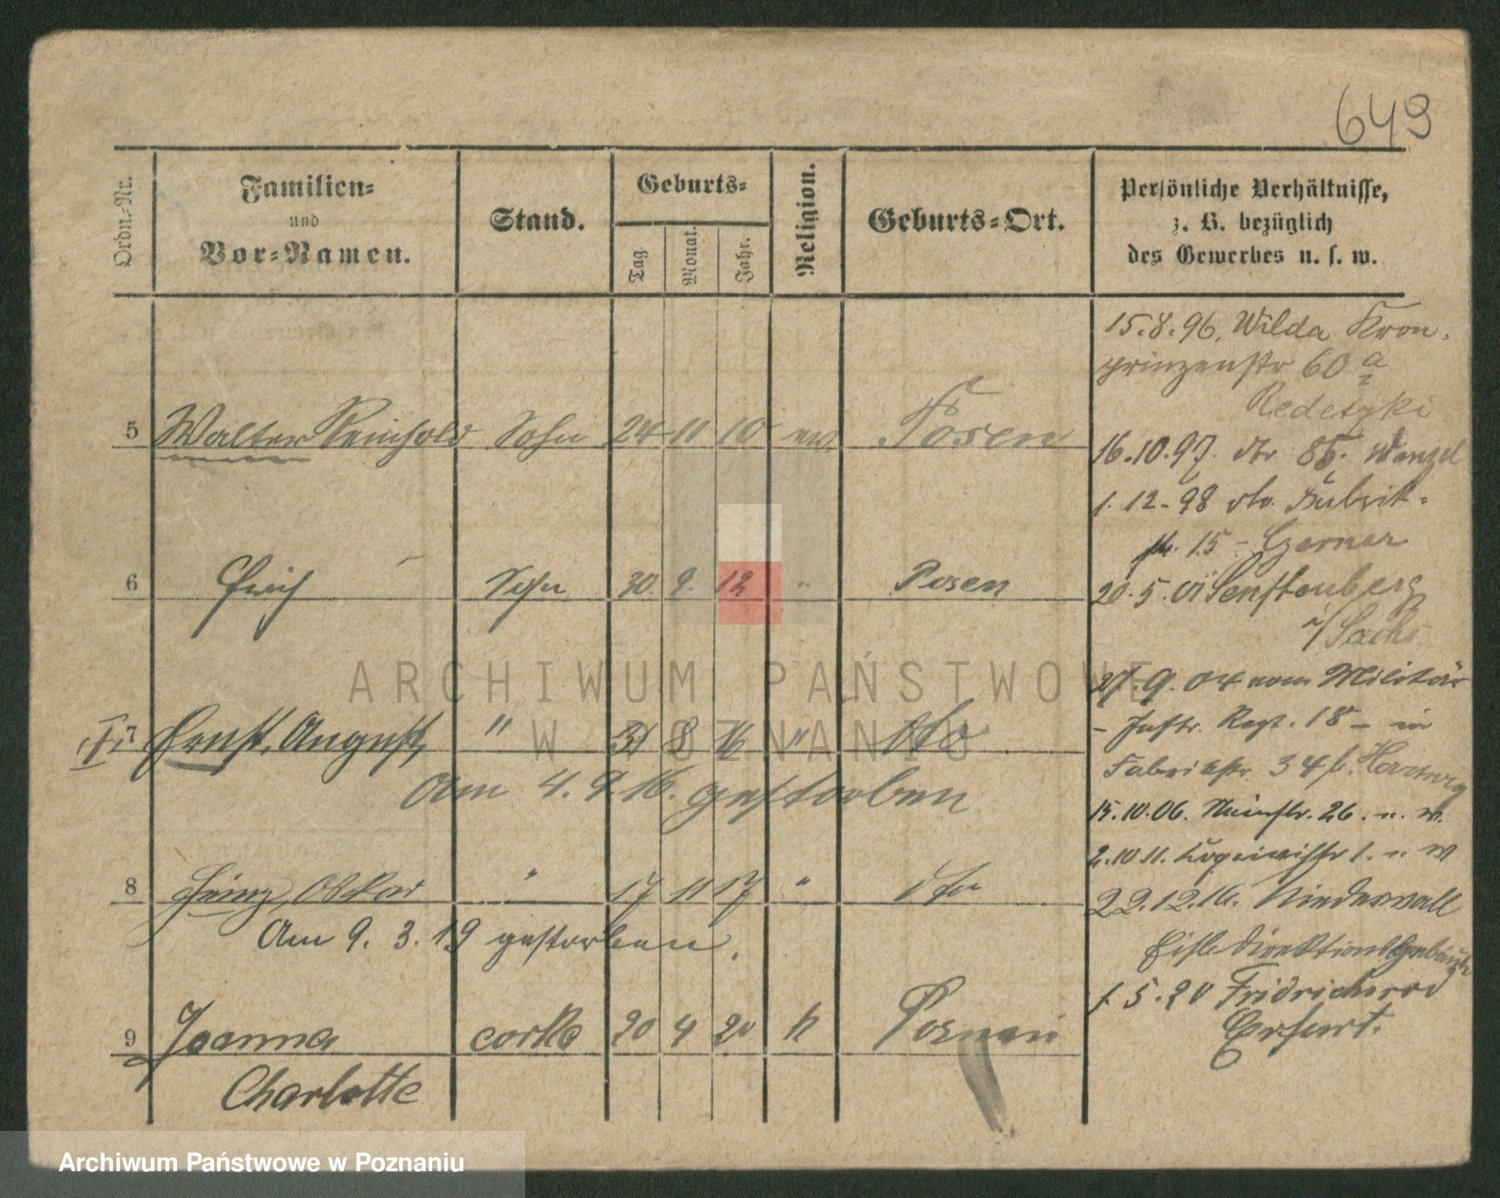 649
Ordn.-Nr.
Familien-
und
Vor-Namen.
Stand.
Geburts-
Tag
Monat.
Jahr.
Religion.
Geburts-Ort.
Persönliche Verhältnisse,
z. B. bezüglich
des Gewerbes u. s. w.
5 Walter Reinhold Sohn 24 11 10 ev. Posen
6 Erich Sohn 30 9. 12 " Posen
7 Ernst, August, " 31 8 16 " dto
Am 4. 9. 16. gestorben
8 Heinz, Oskar " 17 11 17 " dto
Am 9. 3. 19 gestorben.
9 Joanna corka 20 4 20 Poznań
Charlotte
15.8.96. Wilda Kron-
prinzenstr 60 a
16.10.97. dto 85. Wenzel
1.12.98 dto. Fabrik-
str. 15 - Czerner
20.5.01 Senftenberg
i/Sachs
27.9.04 vom Militär
- Inftr. Regt. 18 - in
Fabrikstr. 34 b. Hartwig
15.10.06. 26. u. W.
2.10.11. 1. u W
22.12.16. Niederwall
Eisb. Direktionsgebäude
1.5.20
Erfurt.
ARCHIWUM PAŃSTWOWE
W POZNANIU
Archiwum Państwowe w Poznaniu